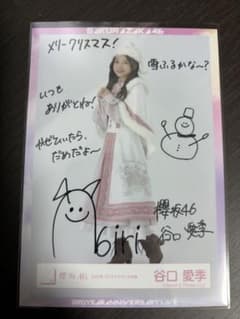 SAKURAZAKA46
メリークリスマス!
雪ふるかな〜?
いつも
ありがとね!
やせていたら、
だめだよ〜
airi
櫻坂46
谷口愛季
櫻坂46
谷口 愛季
ANNIVERSARY LIVE